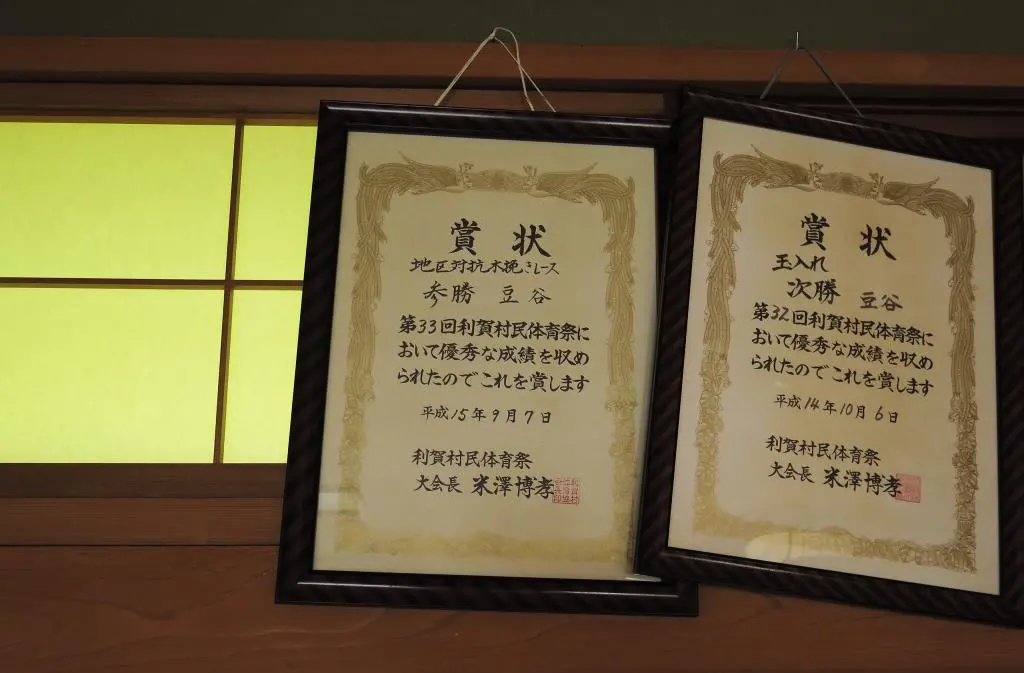 賞状
地区対抗木挽きレース
参勝 豆谷
第33回利賀村民体育祭に
おいて優秀な成績を収め
られたのでこれを賞します
平成15年9月7日
利賀村民体育祭
大会長 米澤博孝
賞状
玉入れ
次勝 豆谷
第32回利賀村民体育祭に
おいて優秀な成績を収め
られたのでこれを賞します
平成14年10月6日
利賀村民体育祭
大会長 米澤博孝